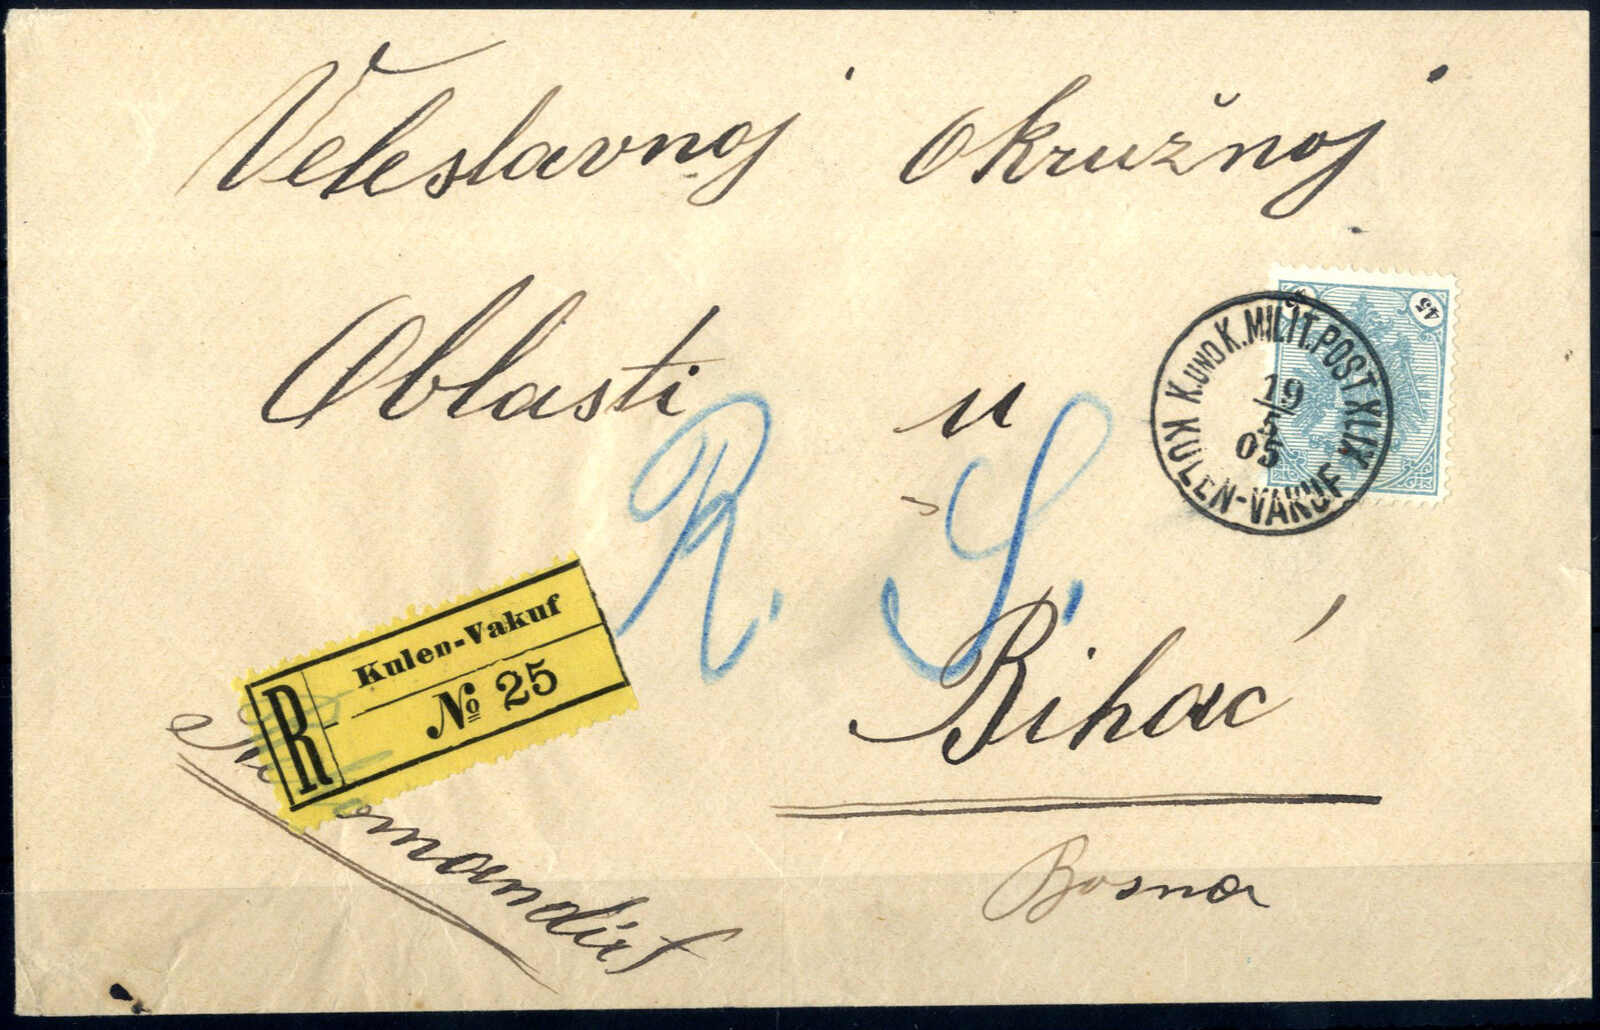 Veleslavnoj okružnoj
Oblasti u
45
K. UND K. MILIT. POST XLIX
19
5
05
KULEN-VAKUF
R. S.
R
Kulen-Vakuf
№ 25
Bihać
Bosna